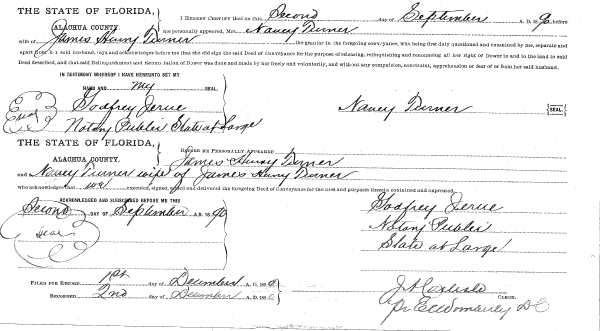 THE STATE OF FLORIDA,
ALACHUA COUNTY.
I HEREBY CERTIFY that on this Second day of September A. D. 189 before
me personally appeared, Mrs. Nancy Turner
wife of James Henry Turner the grantor in the foregoing conveyance, who being first duly questioned and examined by me, separate and
apart from her said husband, says and acknowledges before me that she did sign the said Deed of Conveyance for the purpose of relinquishing and renouncing all her right of Dower in and to the land in said
Deed described, and that said Relinquishment and Renunciation of Dower was done and made by her freely and voluntarily, and without any compulsion, constraint, apprehension or fear of or from her said husband.
IN TESTIMONY WHEREOF I HAVE HEREUNTO SET MY
HAND AND my SEAL.
Godfrey Jerue
Nancy Turner SEAL
Seal
Notary Public State at Large
THE STATE OF FLORIDA,
ALACHUA COUNTY.
BEFORE ME PERSONALLY APPEARED
James Henry Turner
and Nancy Turner wife of James Henry Turner
who acknowledged executed, signed, sealed and delivered the foregoing Deed of Conveyance for the uses and purposes therein contained and expressed.
ACKNOWLEDGED AND SUBSCRIBED BEFORE ME THIS
Second DAY OF September A. D. 1890
Seal
Godfrey Jerue
Notary Public
State at Large
FILED FOR RECORD 1st day of December A. D. 189
RECORDED 2nd day of December A. D. 189
CLERK.
D C